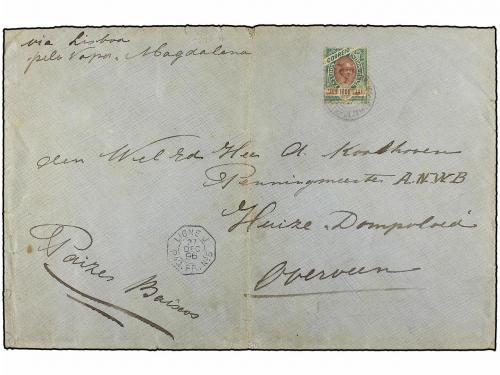 via Lisboa
pelo Vapor. Magdalena
CORREIO
1000 REIS
den Wel Ed Heer A. Koolhoven
Penningmeester A.N.W.B
Huize
Overveen
Paizes Baixos
LIGNE J
27
DEC
96
PAQ. FR. N°6